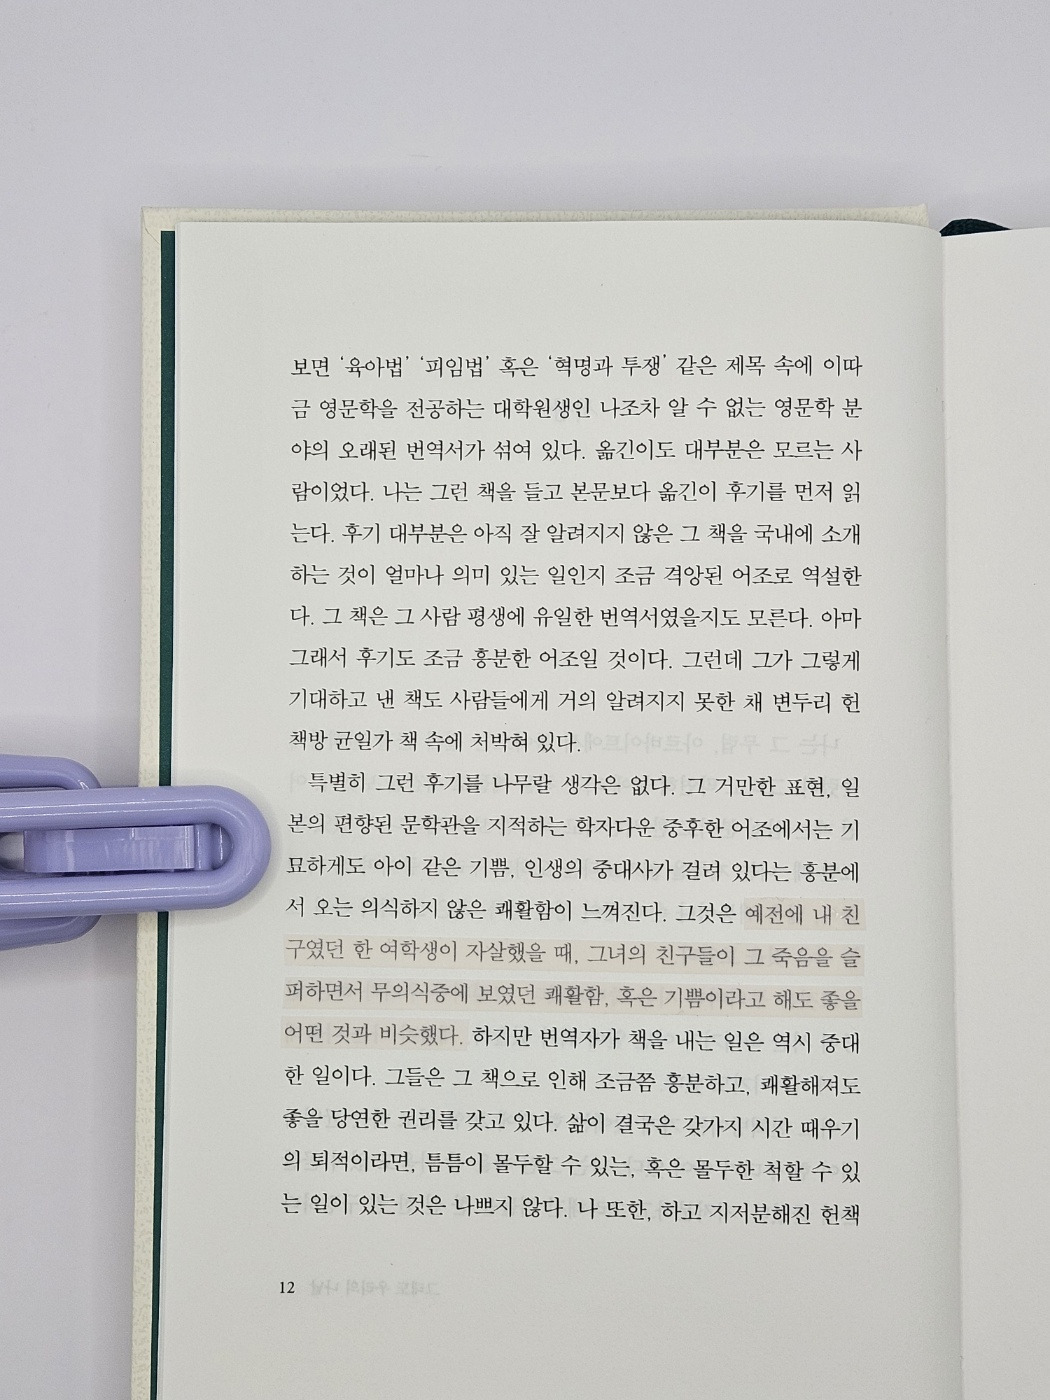 보면 ‘육아법’ ‘피임법’ 혹은 ‘혁명과 투쟁’ 같은 제목 속에 이따
금 영문학을 전공하는 대학원생인 나조차 알 수 없는 영문학 분
야의 오래된 번역서가 섞여 있다. 옮긴이도 대부분은 모르는 사
람이었다. 나는 그런 책을 들고 본문보다 옮긴이 후기를 먼저 읽
는다. 후기 대부분은 아직 잘 알려지지 않은 그 책을 국내에 소개
하는 것이 얼마나 의미 있는 일인지 조금 격앙된 어조로 역설한
다. 그 책은 그 사람 평생에 유일한 번역서였을지도 모른다. 아마
그래서 후기도 조금 흥분한 어조일 것이다. 그런데 그가 그렇게
기대하고 낸 책도 사람들에게 거의 알려지지 못한 채 변두리 헌
책방 균일가 책 속에 처박혀 있다.
특별히 그런 후기를 나무랄 생각은 없다. 그 거만한 표현, 일
본의 편향된 문학관을 지적하는 학자다운 중후한 어조에서는 기
묘하게도 아이 같은 기쁨, 인생의 중대사가 걸려 있다는 흥분에
서 오는 의식하지 않은 쾌활함이 느껴진다. 그것은 예전에 내 친
구였던 한 여학생이 자살했을 때, 그녀의 친구들이 그 죽음을 슬
퍼하면서 무의식중에 보였던 쾌활함, 혹은 기쁨이라고 해도 좋을
어떤 것과 비슷했다. 하지만 번역자가 책을 내는 일은 역시 중대
한 일이다. 그들은 그 책으로 인해 조금쯤 흥분하고, 쾌활해져도
좋을 당연한 권리를 갖고 있다. 삶이 결국은 갖가지 시간 때우기
의 퇴적이라면, 틈틈이 몰두할 수 있는, 혹은 몰두한 척할 수 있
는 일이 있는 것은 나쁘지 않다. 나 또한, 하고 지저분해진 헌책
12